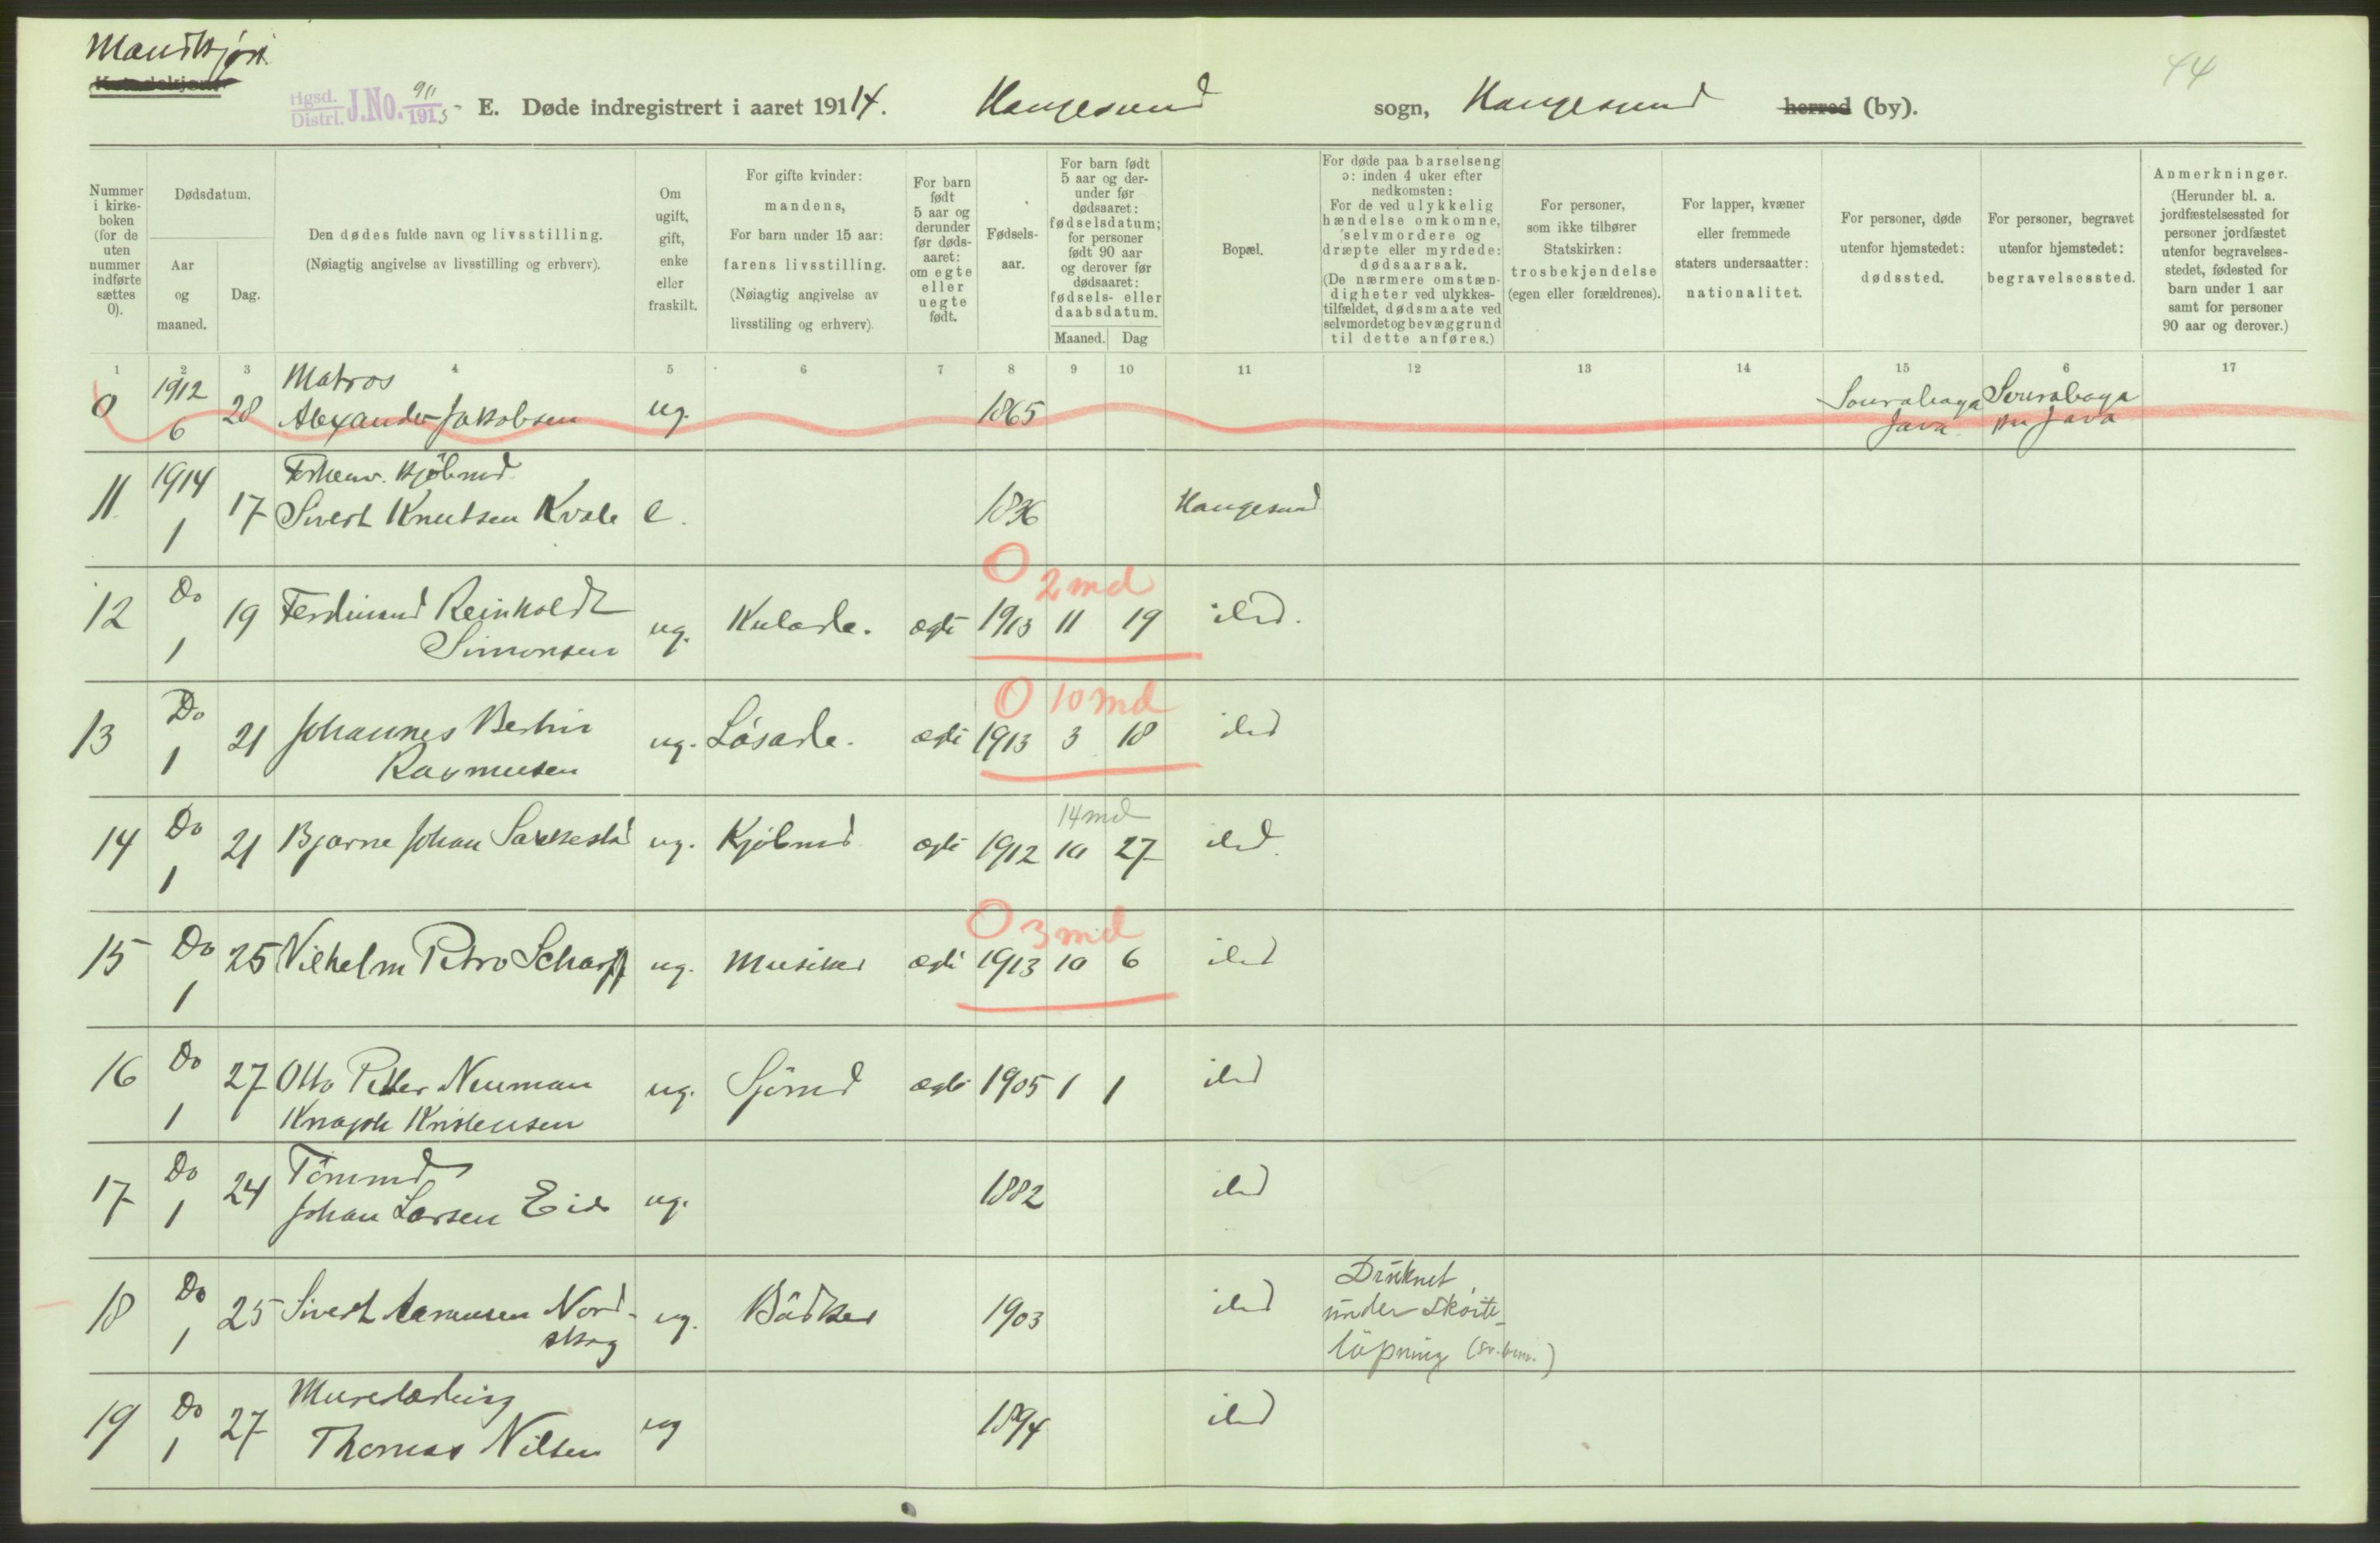 Mandkjøn.
Kvindekjøn.
Hgsd. Distrl. J.No. 911/1915 - E. Døde indregistrert i aaret 1914. Haugesund sogn, Haugesund herred (by). 44
Nummer i kirkeboken (for de uten nummer indførte sættes 0).
Dødsdatum.
Aar og maaned.
Dag.
Den dødes fulde navn og livsstilling.
(Nøiagtig angivelse av livsstilling og erhverv).
Om ugift, gift, enke eller fraskilt.
For gifte kvinder: mandens,
For barn under 15 aar: farens livsstilling.
(Nøiagtig angivelse av livsstiling og erhverv).
For barn født 5 aar og derunder før dødsaaret: om egte eller uegte født.
Fødselsaar.
For barn født 5 aar og derunder før dødsaaret: fødselsdatum; for personer født 90 aar og derover før dødsaaret: fødsels- eller daabsdatum.
Maaned. Dag
Bopæl.
For døde paa barselseng ɔ: inden 4 uker efter nedkomsten:
For de ved ulykkelig hændelse omkomne, selvmordere og dræpte eller myrdede: dødsaarsak.
(De nærmere omstændigheter ved ulykkestilfældet, dødsmaate ved selvmordet og bevæggrund til dette anføres.)
For personer, som ikke tilhører Statskirken: trosbekjendelse (egen eller forældrenes).
For lapper, kvæner eller fremmede staters undersaatter: nationalitet.
For personer, døde utenfor hjemstedet: dødssted.
For personer, begravet utenfor hjemstedet: begravelsessted.
Anmerkninger.
(Herunder bl. a. jordfæstelsessted for personer jordfæstet utenfor begravelsesstedet, fødested for barn under 1 aar samt for personer 90 aar og derover.)
1 2 3 4 5 6 7 8 9 10 11 12 13 14 15 6 17
0 1912 6 28 Matros Alexander Jakobsen ug. 1865 Sourabaya Java Sourabaya Java
11 1914 1 17 Forhenv. Kjøbmd Sivert Knutsen Kvale e. 1836 Haugesund
12 Do 1 19 Ferdinand Reinholdt Simonsen ug. Kularb. ægte 1913 11 19 ibid.
0 2 md
13 Do 1 21 Johannes Bertin Rasmussen ug. Løsarb. ægte 1913 3 18 ibid
0 10 md
14 Do 1 21 Bjarne Johan ug. Kjøbmd ægte 1912 10 27 ibid.
14 md
15 Do 1 25 Vilhelm Petro Scharff ug. Musiker ægte 1913 10 6 ibid
0 3 md
16 Do 1 27 Otto Peder Neuman Kristensen ug. Sjømd ægte 1905 1 1 ibid
17 Do 1 24 Tømmd Johan Larsen Eide ug. 1882 ibid
18 Do 1 25 Sivert Nordskog ug. Bødker 1903 ibid Druknet under Skøiteløpning
19 Do 1 27 Murerlærling Thomas Nilsen ug 1894 ibid